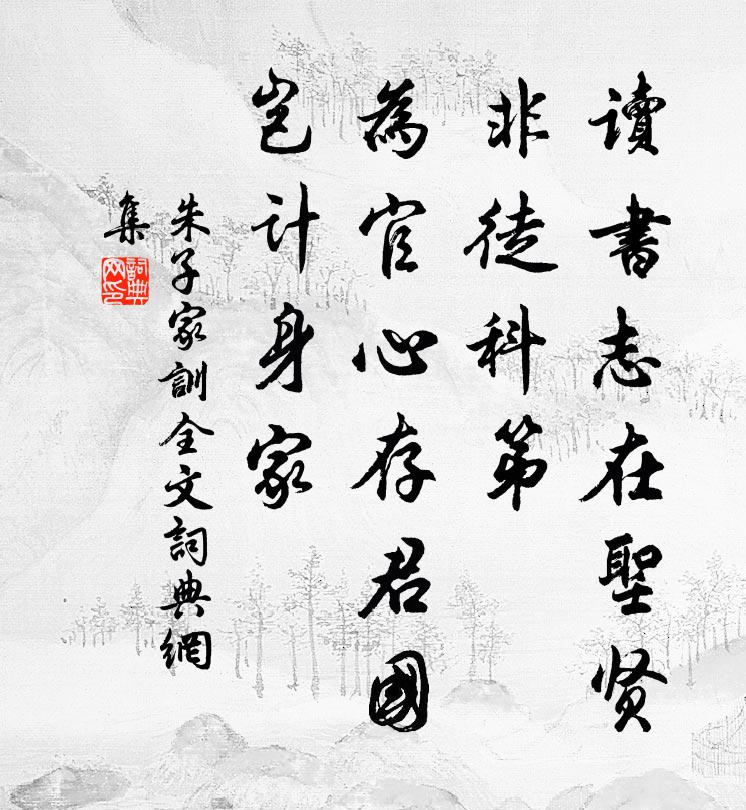 讀書志在聖贤
非徒科第
為官心存君國
岂計身家
朱子家訓全文詞典網
集
詞典
网印